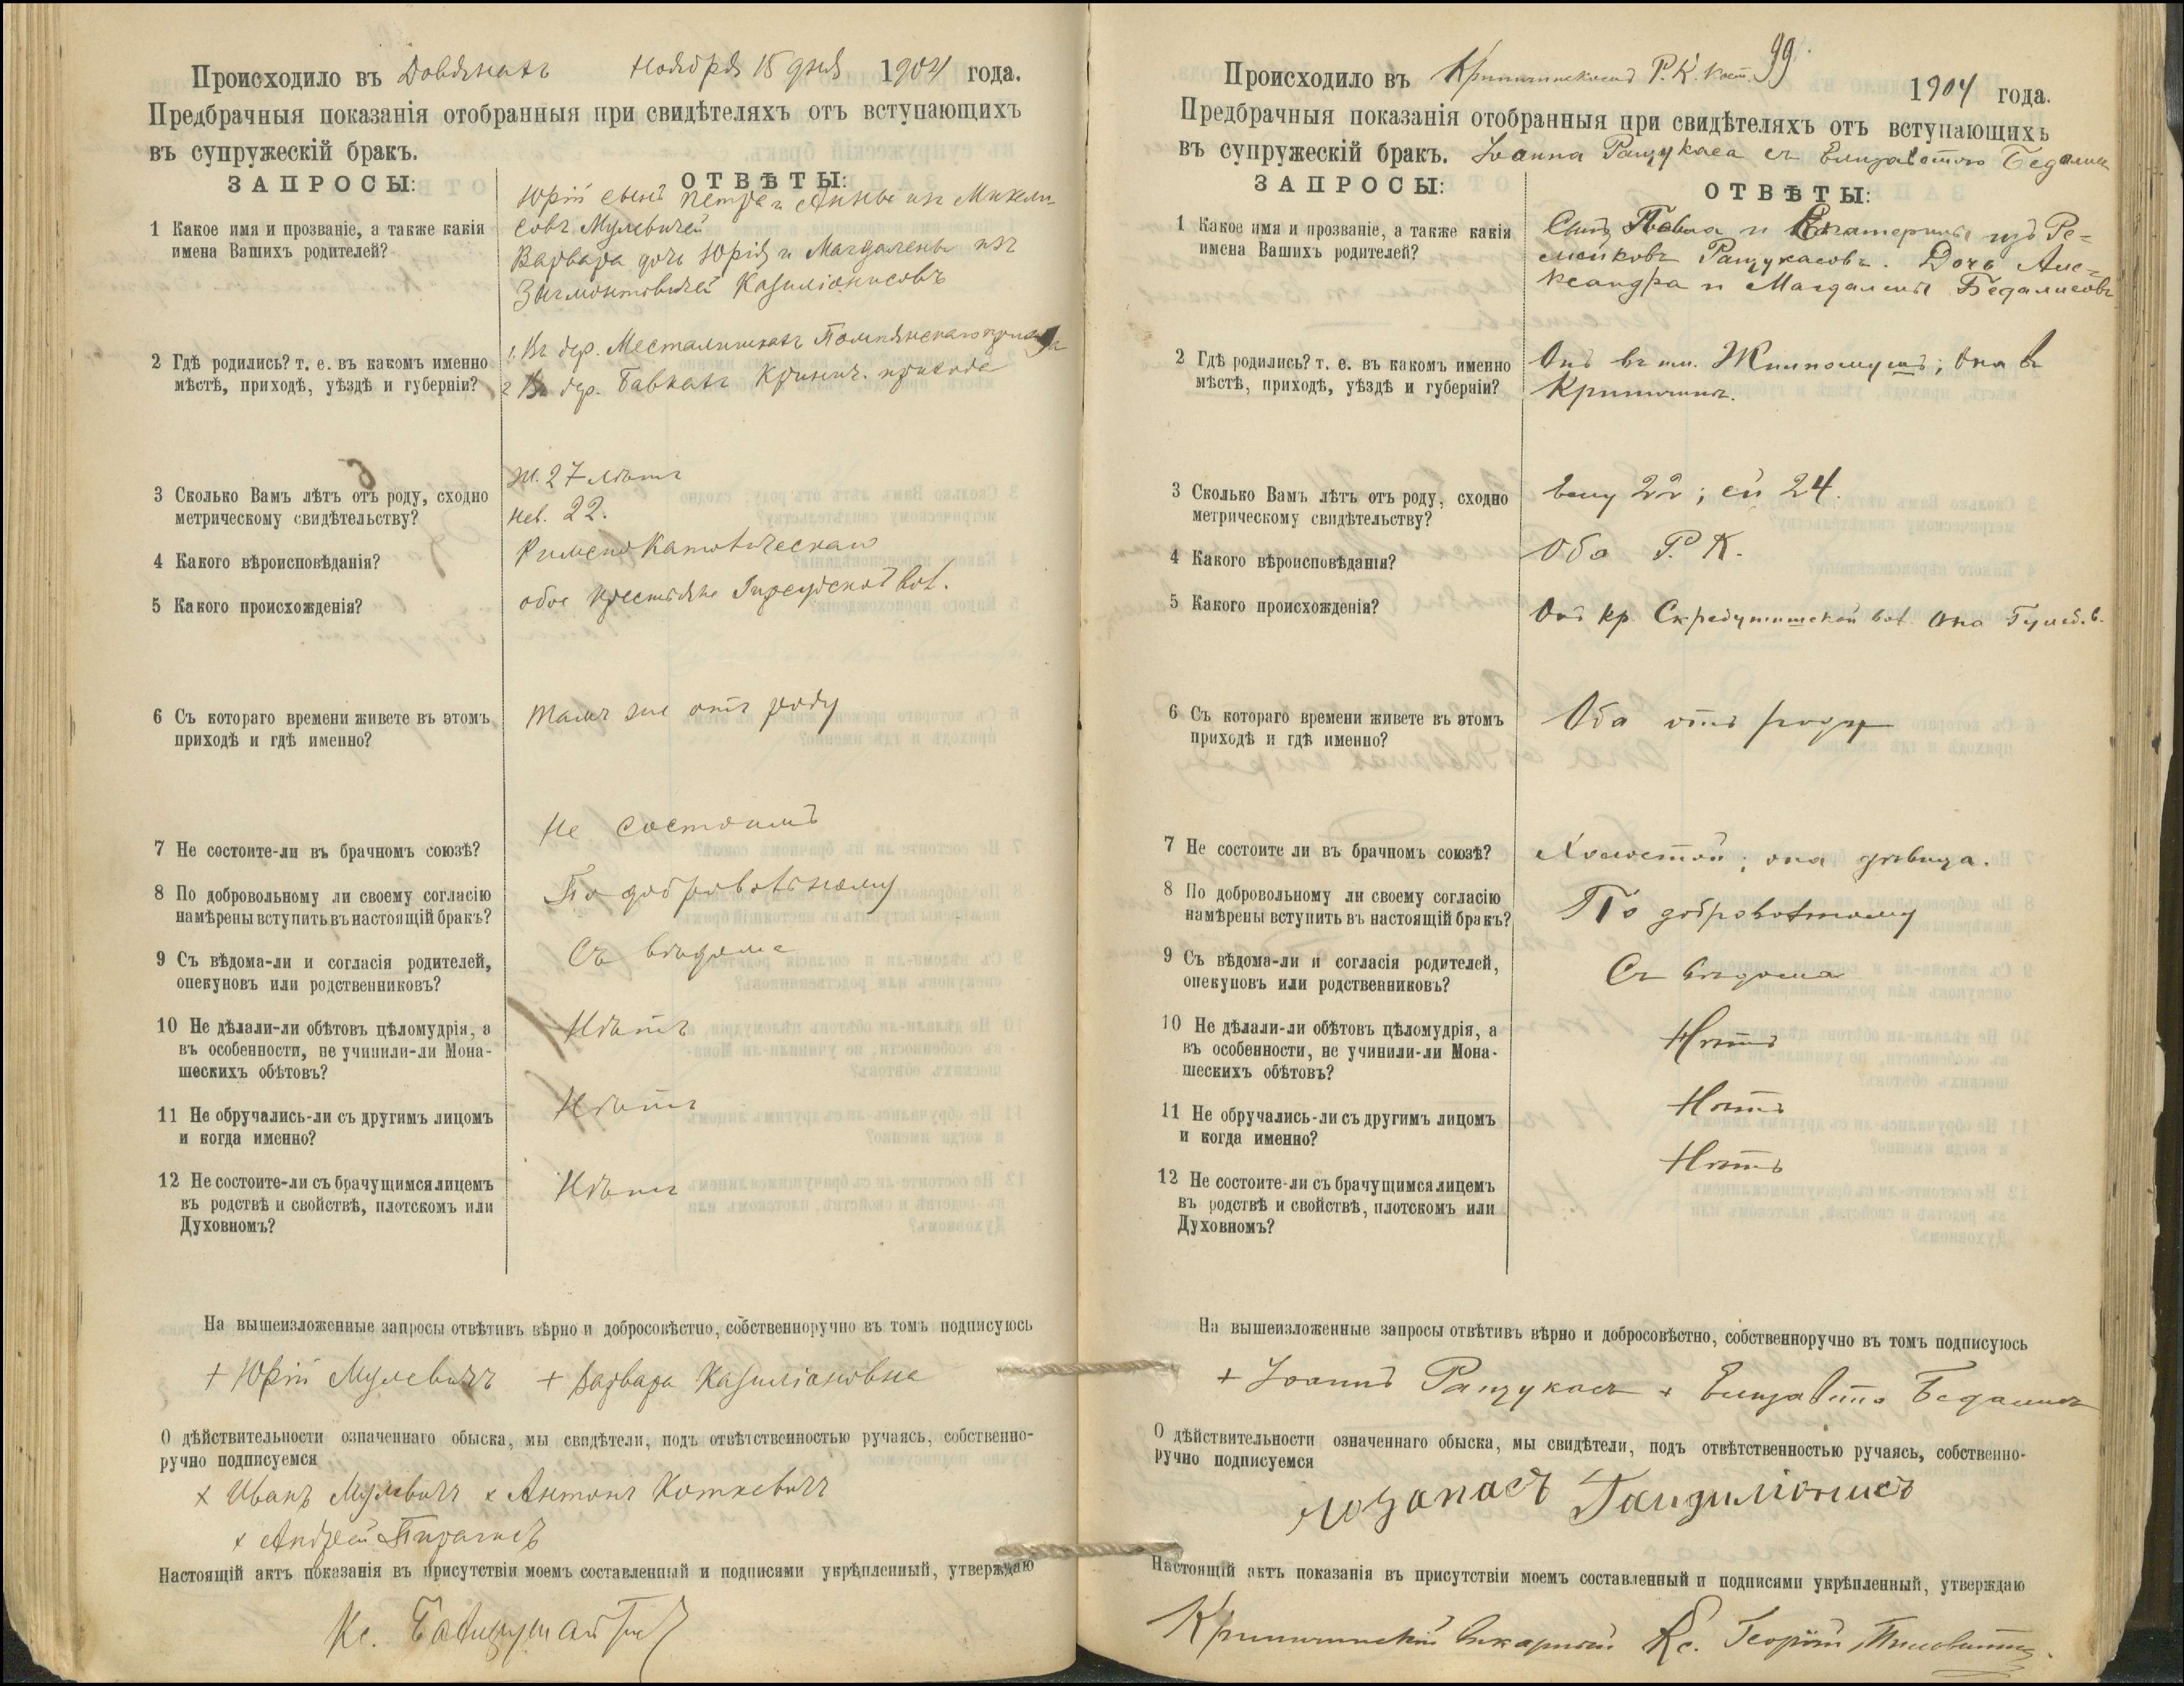 Происходило въ Довянахъ Ноября 15 дня 1904 года.
Предбрачныя показанія отобранныя при свидѣтеляхъ отъ вступающихъ
въ супружескій бракъ.
ЗАПРОСЫ: ОТВѢТЫ:
1 Какое имя и прозваніе, а также какія
имена Вашихъ родителей?
Юрій сынъ Петра и Анны изъ Микели-
совъ Мулевичей
Варвара дочь Юрія и Магдалены изъ
Зыгмонтовичей Казиліонисовъ
2 Гдѣ родились? т. е. въ какомъ именно
мѣстѣ, приходѣ, уѣздѣ и губерніи?
1, Въ дер. Месталишкахъ Помпянскаго прихода
2 Въ дер. Бавкахъ Кринич. прихода
3 Сколько Вамъ лѣтъ отъ роду, сходно
метрическому свидѣтельству?
ж. 27 лѣтъ
нев. 22.
4 Какого вѣроисповѣданія?
Римско Католическаго
5 Какого происхожденія?
обое крестьяне Гирсудской вол.
6 Съ котораго времени живете въ этомъ
приходѣ и гдѣ именно?
тамъ же отъ роду
7 Не состоите-ли въ брачномъ союзѣ?
Не состоимъ
8 По добровольному ли своему согласію
намѣрены вступить въ настоящій бракъ?
По добровольному
9 Съ вѣдома-ли и согласія родителей,
опекуновъ или родственниковъ?
Съ вѣдома
10 Не дѣлали-ли обѣтовъ цѣломудрія, а
въ особенности, не учинили-ли Мона-
шескихъ обѣтовъ?
Нѣтъ
11 Не обручались-ли съ другимъ лицомъ
и когда именно?
Нѣтъ
12 Не состоите-ли съ брачущимся лицемъ
въ родствѣ и свойствѣ, плотскомъ или
Духовномъ?
Нѣтъ
На вышеизложенные запросы отвѣтивъ вѣрно и добросовѣстно, собственноручно въ томъ подписуюсь
+ Юрій Мулевичъ + Варвара Казиліоновна
О дѣйствительности означеннаго обыска, мы свидѣтели, подъ отвѣтственностью ручаясь, собственно-
ручно подписуемся
х Иванъ Мулевичъ х Антонъ Коткевичъ
х Андрей Пирагисъ
Настоящій актъ показанія въ присутствіи моемъ составленный и подписями укрѣпленный, утверждаю
Кс.
99.
Происходило въ Криничинскомъ Р. К. кост. 1904 года.
Предбрачныя показанія отобранныя при свидѣтеляхъ отъ вступающихъ
въ супружескій бракъ. Іоанна Ращукаса съ Елизаветою Бедалис
ЗАПРОСЫ: ОТВѢТЫ:
1 Какое имя и прозваніе, а также какія
имена Вашихъ родителей?
Сынъ Павла и Екатерины изъ Ре-
мейковъ Ращукасовъ. Дочь Але-
ксандра и Магдалены Бедалисовъ
2 Гдѣ родились? т. е. въ какомъ именно
мѣстѣ, приходѣ, уѣздѣ и губерніи?
Онъ въ им. ; Она въ
Криничинъ.
3 Сколько Вамъ лѣтъ отъ роду, сходно
метрическому свидѣтельству?
Ему 22; ей 24.
4 Какого вѣроисповѣданія?
Оба Р. К.
5 Какого происхожденія?
Онъ кр. вол. Она в.
6 Съ котораго времени живете въ этомъ
приходѣ и гдѣ именно?
Оба отъ роду
7 Не состоите ли въ брачномъ союзѣ?
Холостой; она дѣвица.
8 По добровольному ли своему согласію
намѣрены вступить въ настоящій бракъ?
По добровольному
9 Съ вѣдома-ли и согласія родителей,
опекуновъ или родственниковъ?
Съ вѣдома
10 Не дѣлали-ли обѣтовъ цѣломудрія, а
въ особенности, не учинили-ли Мона-
шескихъ обѣтовъ?
Нѣтъ
11 Не обручались-ли съ другимъ лицомъ
и когда именно?
Нѣтъ
12 Не состоите-ли съ брачущимся лицемъ
въ родствѣ и свойствѣ, плотскомъ или
Духовномъ?
Нѣтъ
На вышеизложенные запросы отвѣтивъ вѣрно и добросовѣстно, собственноручно въ томъ подписуюсь
+ Іоаннъ Ращукасъ + Елизавета Бедалисъ
О дѣйствительности означеннаго обыска, мы свидѣтели, подъ отвѣтственностью ручаясь, собственно-
ручно подписуемся
Юзапасъ
Настоящій актъ показанія въ присутствіи моемъ составленный и подписями укрѣпленный, утверждаю
Криничинскій викарный Кс. Георгій